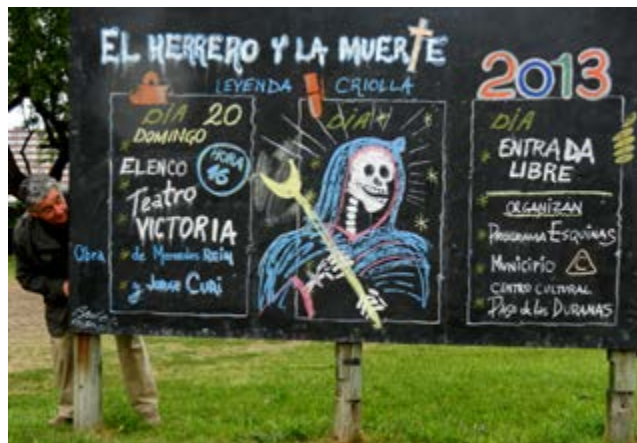 EL HERRERO Y LA MUERTE
LEYENDA CRIOLLA
2013
DÍA 20
DOMINGO
HORA
16
ELENCO
Teatro
VICTORIA
Obra de Mercedes Rein
y Jorge Curi
DÍA
DÍA
ENTRADA
LIBRE
ORGANIZAN
PROGRAMA ESQUINAS
Municipio C
CENTRO CULTURAL
Paso de las DURANAS